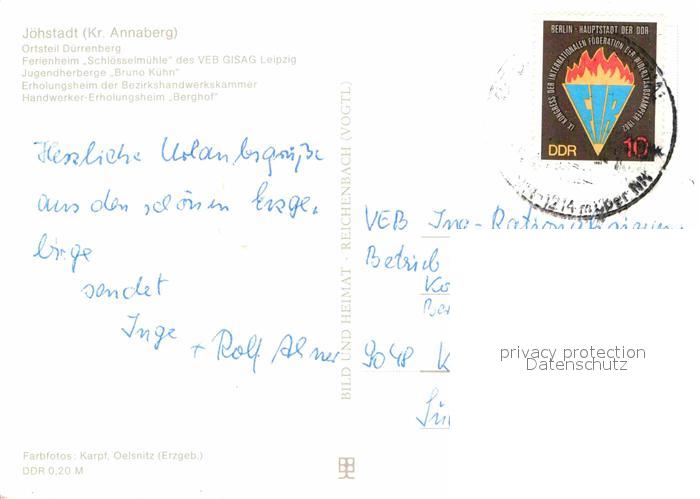 Jöhstadt (Kr. Annaberg)
Ortsteil Dürrenberg
Ferienheim „Schlösselmühle" des VEB GISAG Leipzig
Jugendherberge „Bruno Kühn"
Erholungsheim der Bezirkshandwerkskammer
Handwerker-Erholungsheim „Berghof"
BERLIN - HAUPTSTADT DER DDR
IX. KONGRESS DER INTERNATIONALEN FÖDERATION DER WIDERSTANDSKÄMPFER 1982
FIR
DDR 10
über NN
Herzliche Urlaubsgrüße
aus den schönen Erzge,
birge
sendet
Inge
+ Rolf
BILD UND HEIMAT · REICHENBACH (VOGTL)
VEB Ing.-
Betrieb
9048 K
privacy protection
Datenschutz
Farbfotos: Karpf, Oelsnitz (Erzgeb.)
DDR 0,20 M